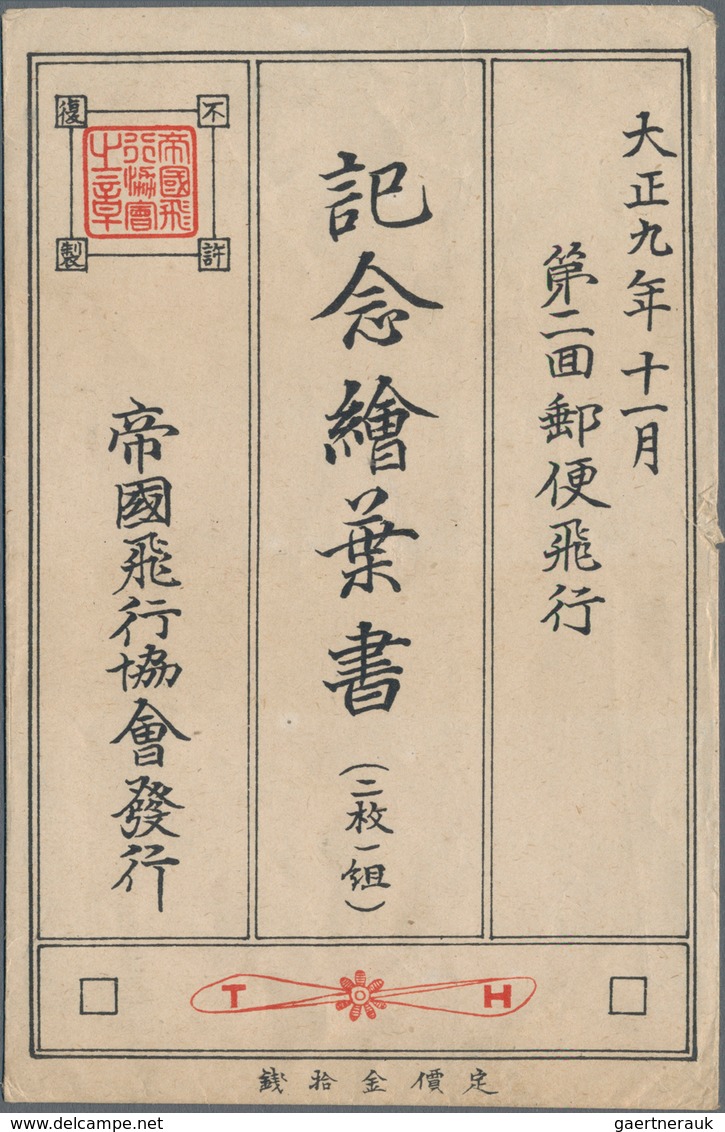 大正九年十一月
第二囬郵便飛行
記念繪葉書
(二枚一組)
不許復製
帝國飛行協會之章
帝國飛行協會發行
T H
定價金拾錢
gaertnerauk